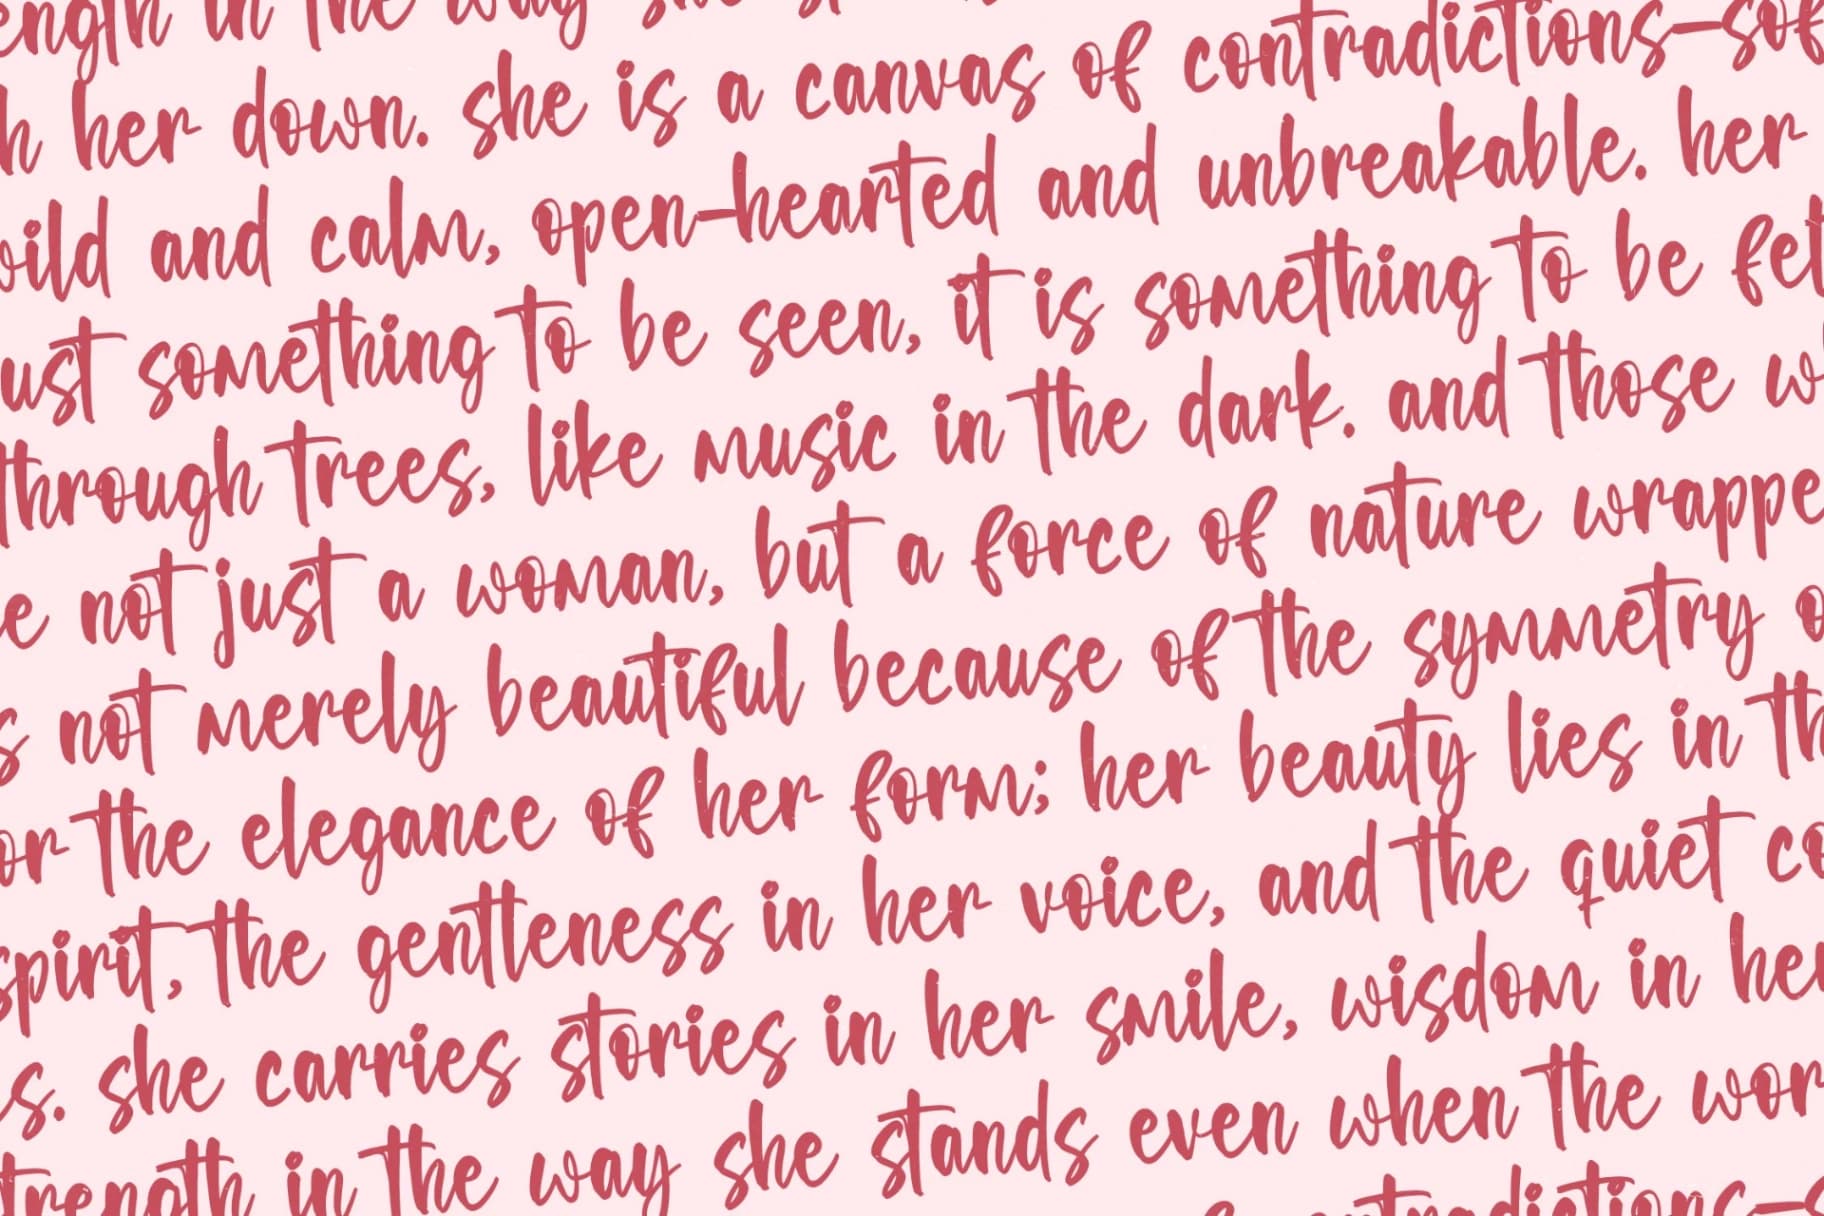 in the way she
her down. she is a canvas of contradictions—sof
ild and calm, open-hearted and unbreakable. her
ust something to be seen, it is something to be fel
through trees, like music in the dark. and those w
e not just a woman, but a force of nature wrappe
s not merely beautiful because of the symmetry o
or the elegance of her form; her beauty lies in th
spirit, the gentleness in her voice, and the quiet co
s. she carries stories in her smile, wisdom in her
trength in the way she stands even when the wor
ontradictions—s